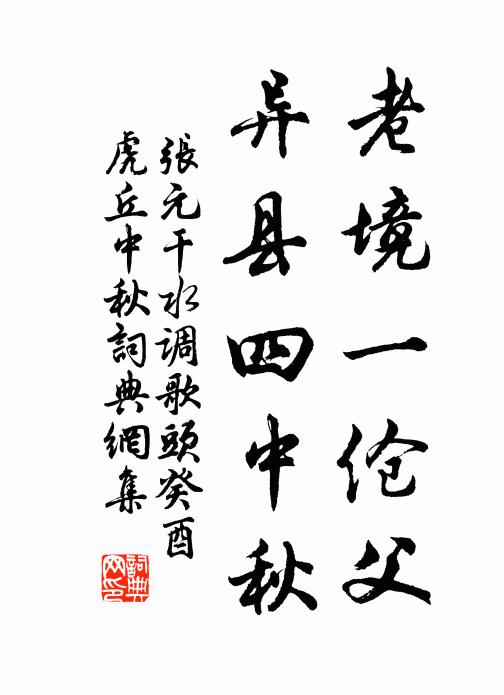 老境一伧父
异县四中秋
張元干水调歌頭癸酉
虎丘中秋詞典網集
詞典
网印